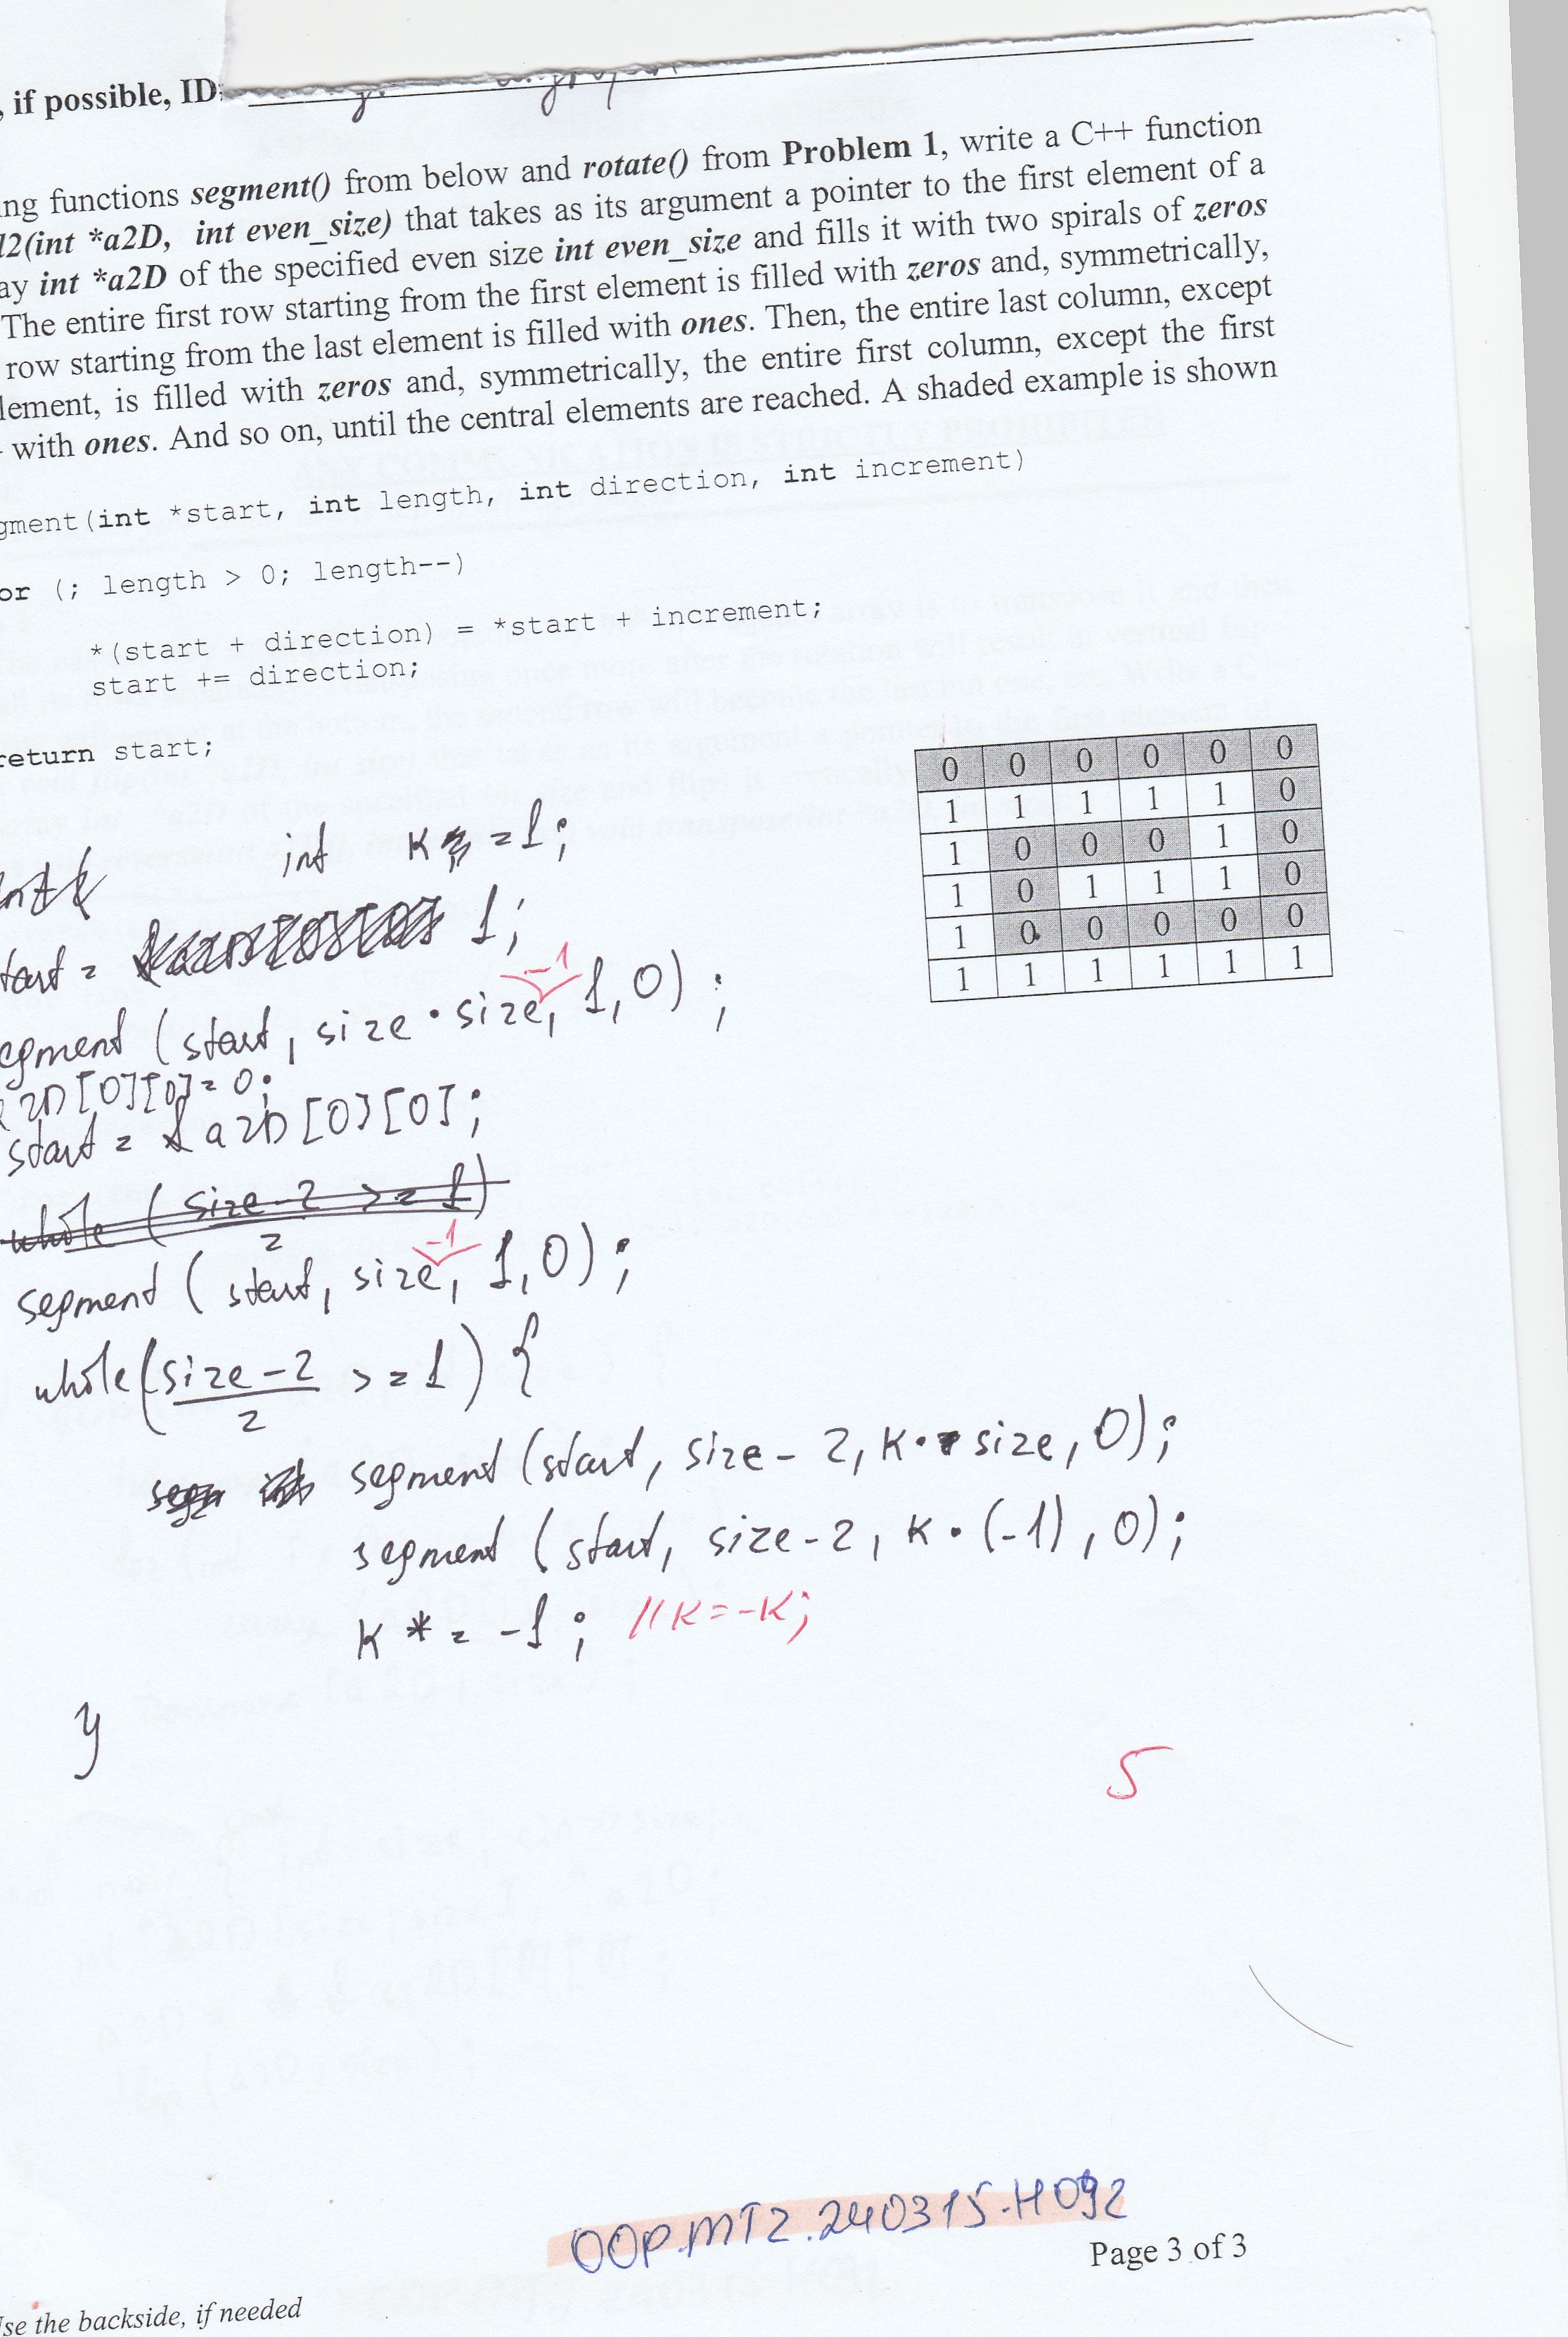 , if possible, ID:
ng functions segment() from below and rotate() from Problem 1, write a C++ function
l2(int *a2D, int even_size) that takes as its argument a pointer to the first element of a
ay int *a2D of the specified even size int even_size and fills it with two spirals of zeros
The entire first row starting from the first element is filled with zeros and, symmetrically,
row starting from the last element is filled with ones. Then, the entire last column, except
lement, is filled with zeros and, symmetrically, the entire first column, except the first
with ones. And so on, until the central elements are reached. A shaded example is shown
gment(int *start, int length, int direction, int increment)
or (; length > 0; length--)
*(start + direction) = *start + increment;
start += direction;
return start;
0 0 0 0 0 0
1 1 1 1 1 0
1 0 0 0 1 0
1 0 1 1 1 0
1 0 0 0 0 0
1 1 1 1 1 1
int k = 1;
tart = 1;
-1
egment (start, size · size, 1, 0);
2D[0][0] = 0;
start = &a2D[0][0];
while (size-2 >= 1)
2
-1
segment (start, size, 1, 0);
while (size-2 >= 1) {
2
segment (start, size-2, k · size, 0);
segment (start, size-2, k · (-1), 0);
k *= -1; //k=-k;
}
5
OOP.MT2.240315.H092
Page 3 of 3
Use the backside, if needed